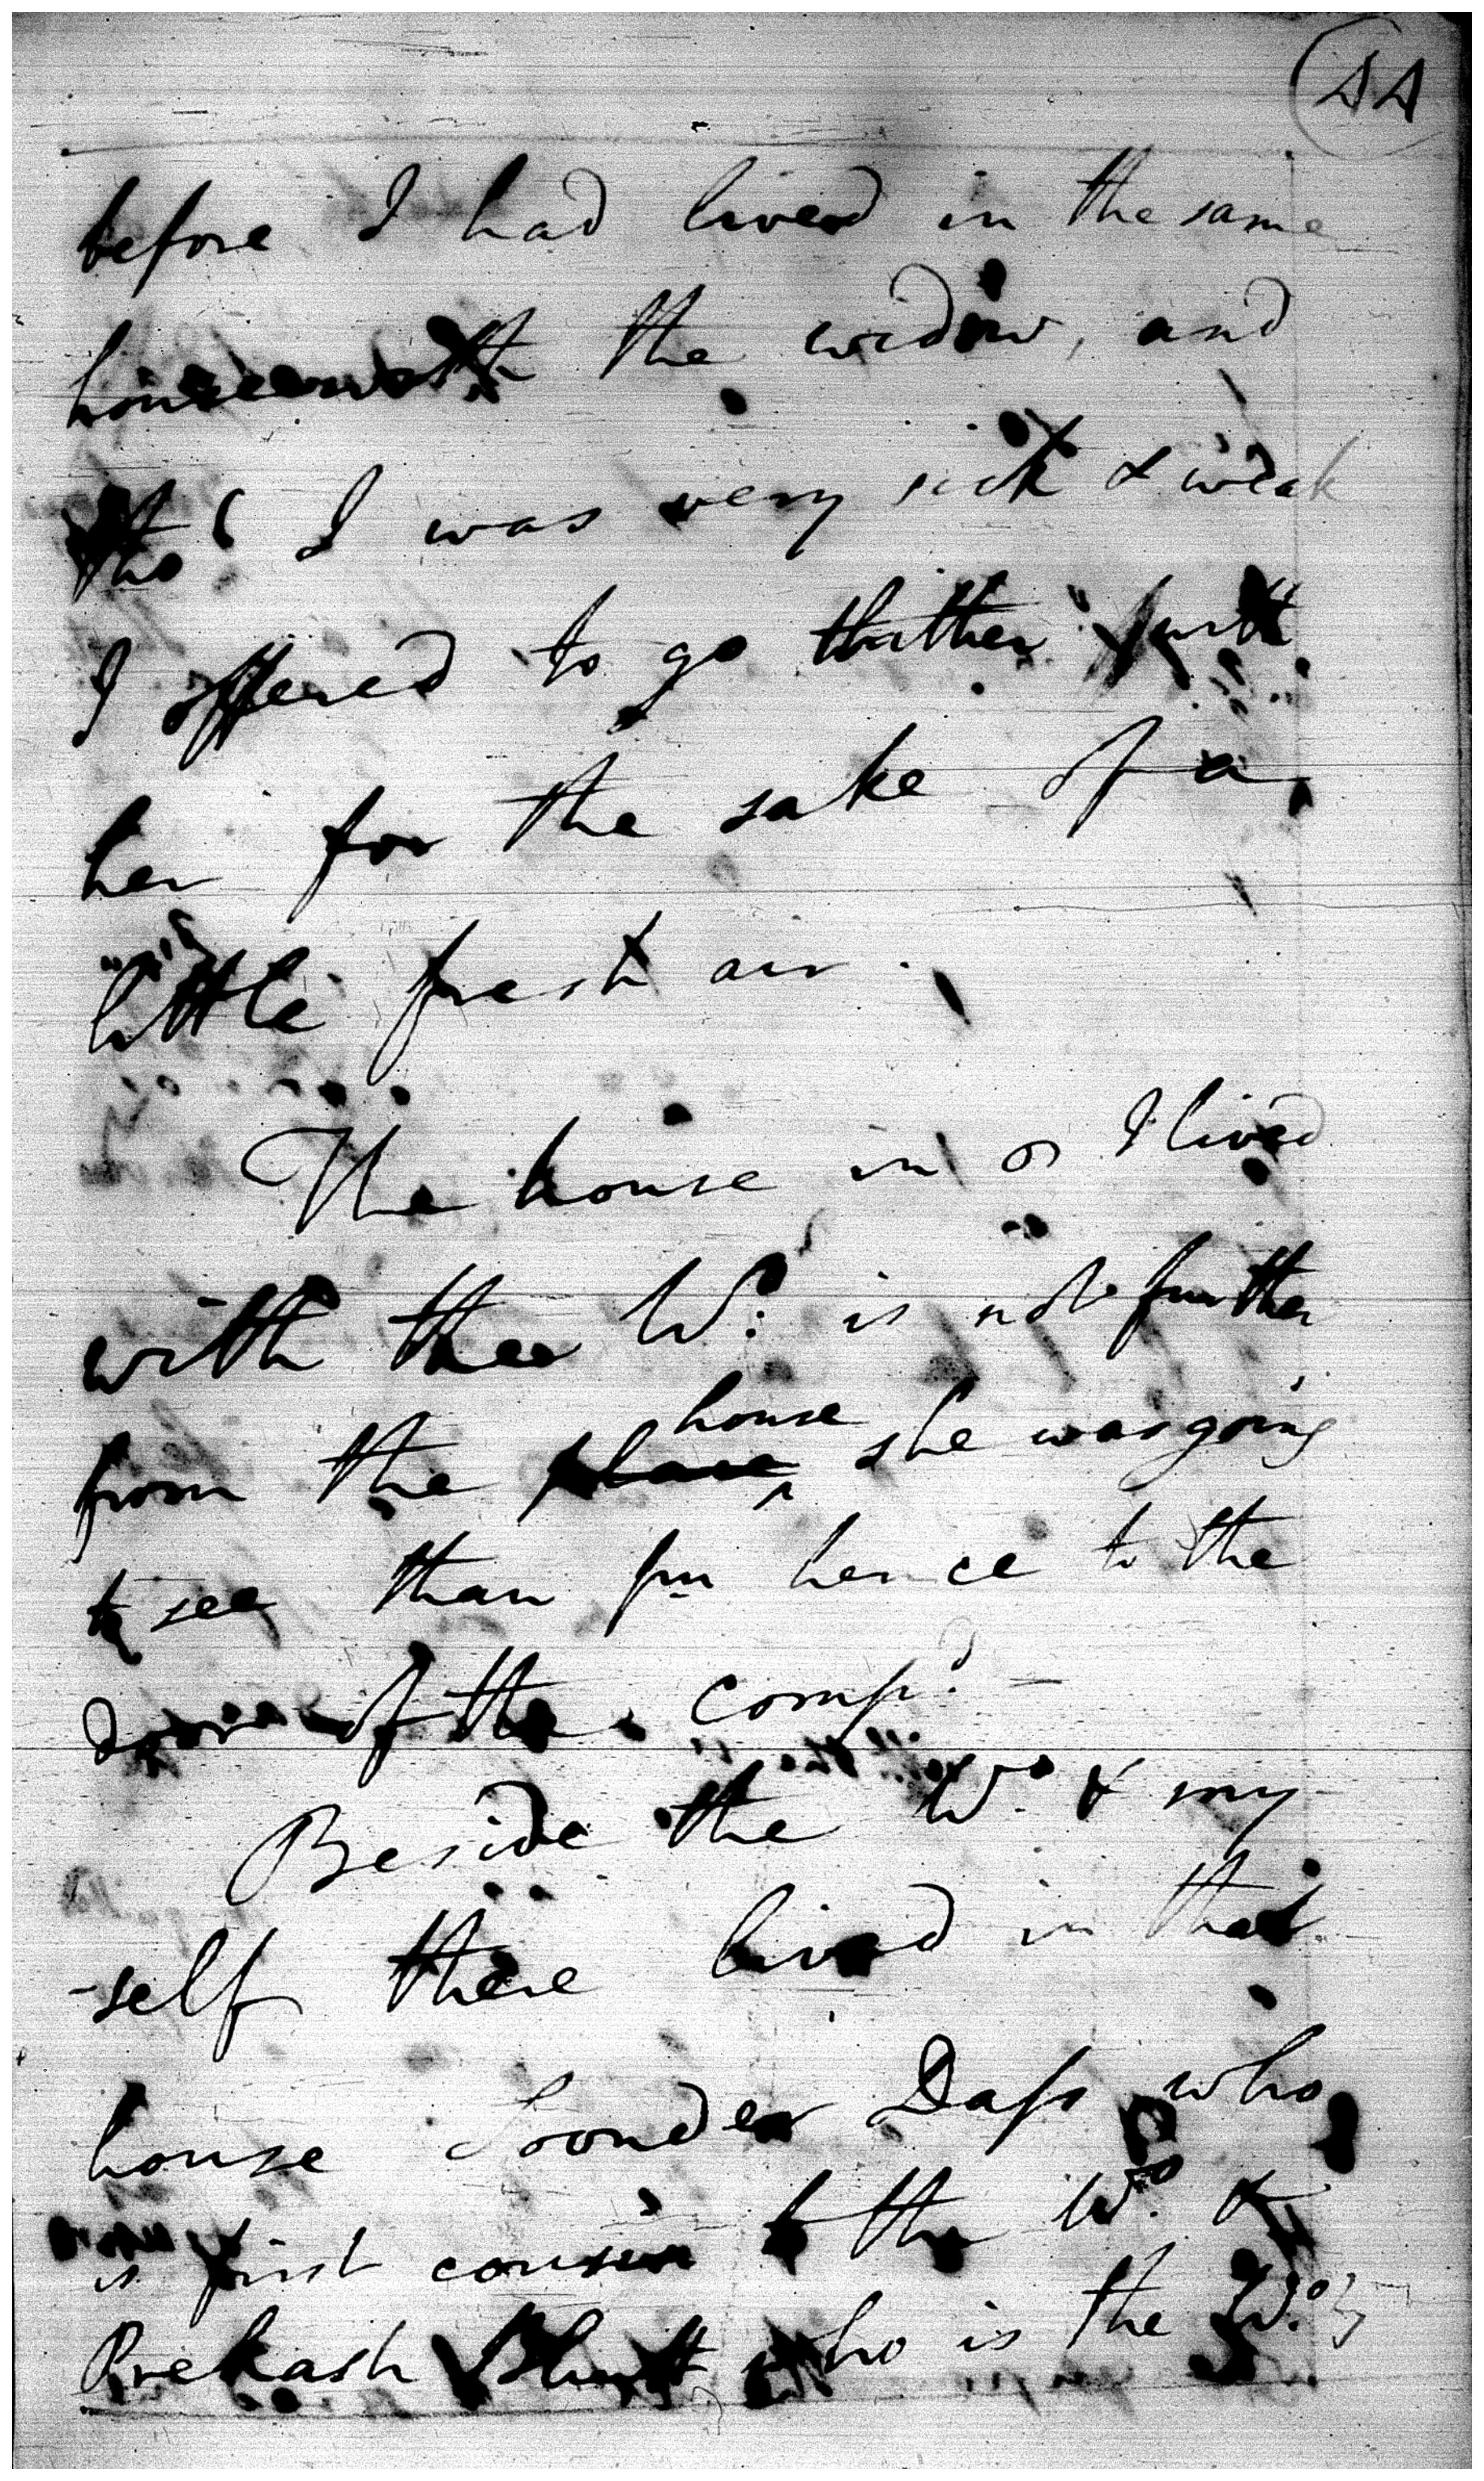 AA
before I had lived in the same
house with the widow, and
tho' I was very sick & weak
I offered to go thither with
her for the sake of a
little fresh air.
The house in I lived
with the Wo. is not further
from the place house she was going
to see than fm hence to the
door of the compd. -
Beside the Wo. & my
-self there lived in that
house Soonder Dass who
is first cousin to the Wo. &
Prekash who is the Wo.'s